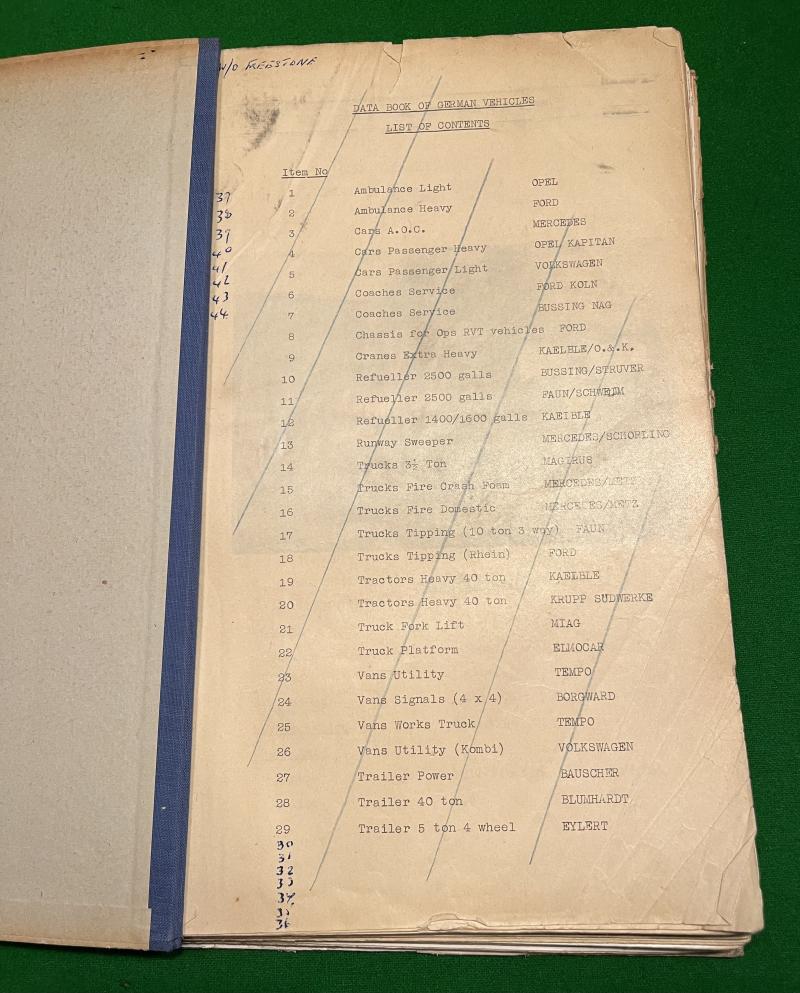 W/O FREESTONE
DATA BOOK OF GERMAN VEHICLES
LIST OF CONTENTS
Item No
1 Ambulance Light OPEL
2 Ambulance Heavy FORD
3 Cars A.O.C. MERCEDES
4 Cars Passenger Heavy OPEL KAPITAN
5 Cars Passenger Light VOLKSWAGEN
6 Coaches Service FORD KOLN
7 Coaches Service BUSSING NAG
8 Chassis for Ops RVT vehicles FORD
9 Cranes Extra Heavy KAELBLE/O.&.K.
10 Refueller 2500 galls BUSSING/STRUVER
11 Refueller 2500 galls FAUN/SCHWELM
12 Refueller 1400/1600 galls KAEIBLE
13 Runway Sweeper MERCEDES/SCHORLING
14 Trucks 3½ Ton MAGIRUS
15 Trucks Fire Crash Foam MERCEDES/METZ
16 Trucks Fire Domestic MERCEDES/METZ
17 Trucks Tipping (10 ton 3 way) FAUN
18 Trucks Tipping (Rhein) FORD
19 Tractors Heavy 40 ton KAELBLE
20 Tractors Heavy 40 ton KRUPP SUDWERKE
21 Truck Fork Lift MIAG
22 Truck Platform ELMOCAR
23 Vans Utility TEMPO
24 Vans Signals (4 x 4) BORGWARD
25 Vans Works Truck TEMPO
26 Vans Utility (Kombi) VOLKSWAGEN
27 Trailer Power BAUSCHER
28 Trailer 40 ton BLUMHARDT
29 Trailer 5 ton 4 wheel EYLERT
30
31
32
33
34
35
36
37
38
39
40
41
42
43
44